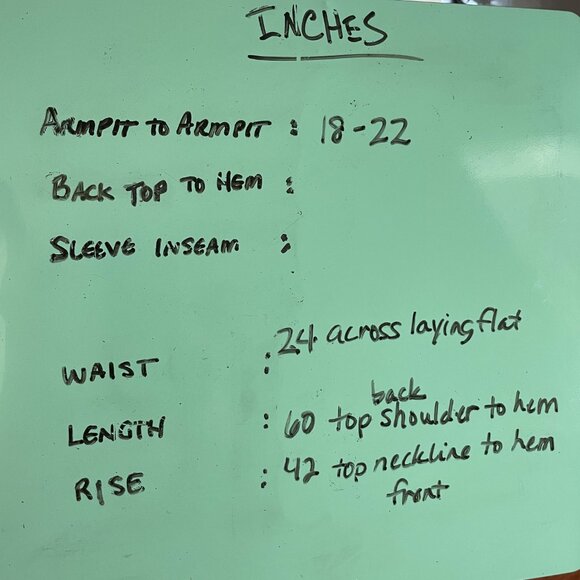 INCHES
ARMPIT TO ARMPIT : 18-22
BACK TOP TO HEM :
SLEEVE INSEAM :
WAIST : 24 across laying flat
LENGTH : 60 top back shoulder to hem
RISE : 42 top neckline to hem
front